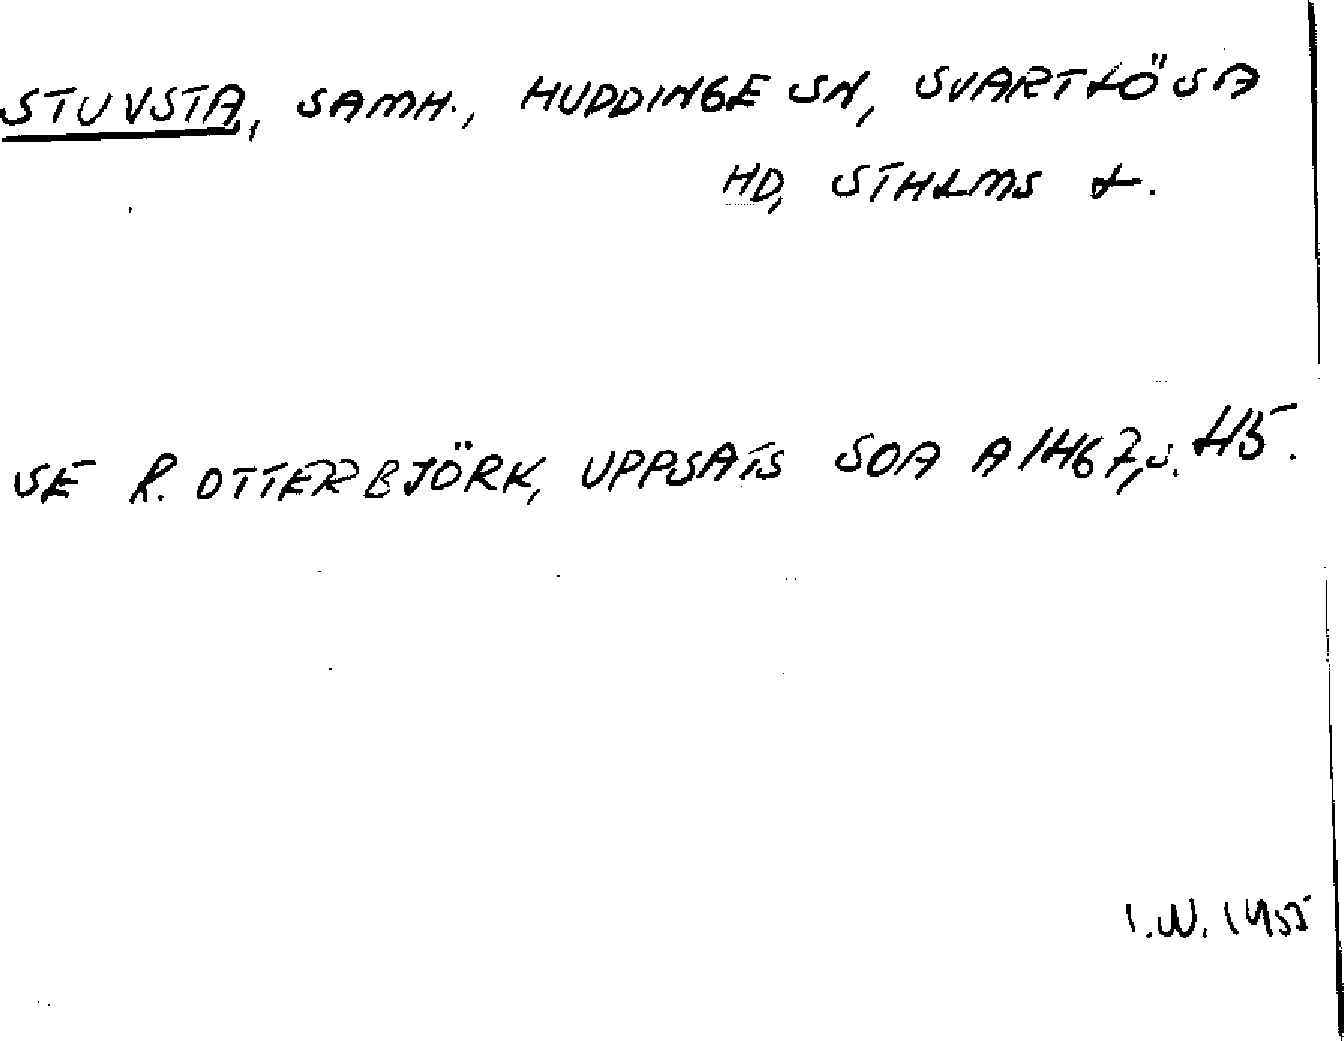 STUVSTA, SAMH., HUDDINGE SN, SVARTLÖSA
HD, STHLMS L.
SE R. OTTERBJÖRK, UPPSATS SOA A1467, S. 45.
I.W. 1955